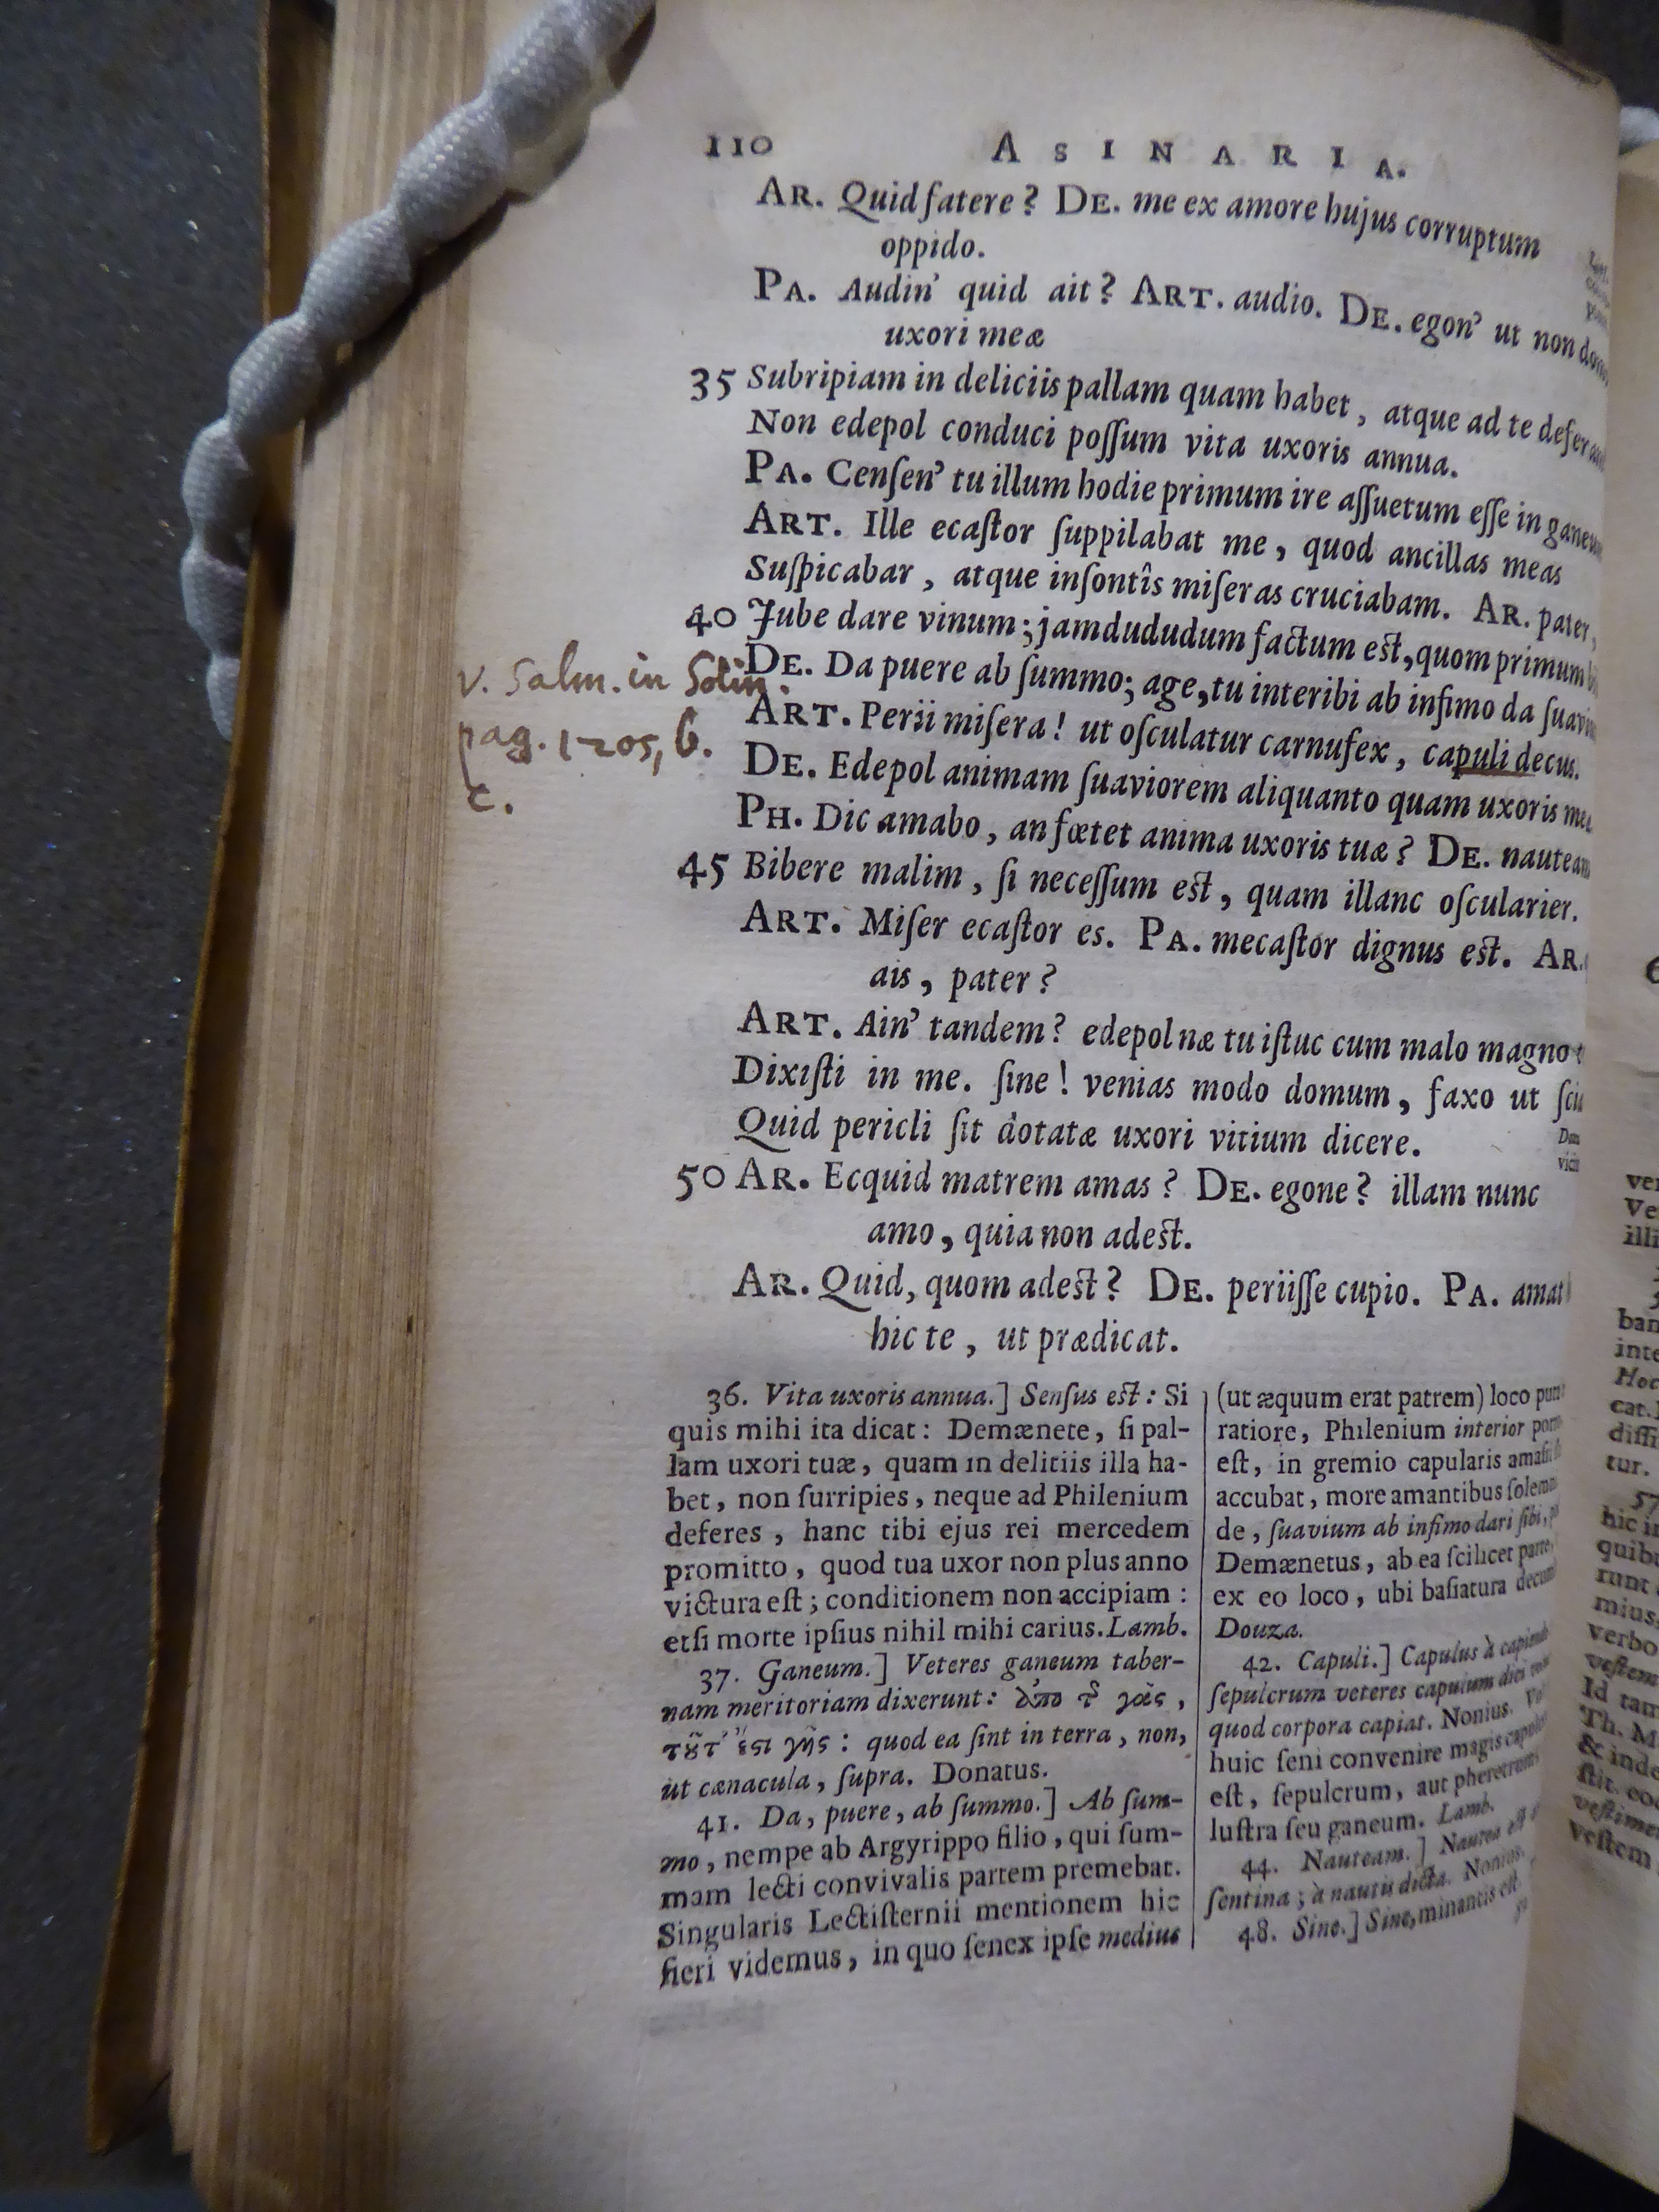 110 ASINARIA.
AR. Quid fatere? DE. me ex amore hujus corruptum
oppido.
PA. Audin' quid ait? ART. audio. DE. egon' ut non
uxori meæ
35 Subripiam in deliciis pallam quam habet, atque ad te
Non edepol conduci poſſum vita uxoris annua.
PA. Cenſen' tu illum hodie primum ire aſſuetum eſſe in
ART. Ille ecaſtor ſuppilabat me, quod ancillas meas
Suſpicabar, atque inſontîs miſeras cruciabam. AR. pater,
40 Jube dare vinum; jamdududum factum eſt, quom primum
v. Salm. in Solin.
pag. 1205, b.
c.
DE. Da puere ab ſummo; age, tu interibi ab infimo da
ART. Perii miſera! ut oſculatur carnufex, capuli decus.
DE. Edepol animam ſuaviorem aliquanto quam uxoris
PH. Dic amabo, an fœtet anima uxoris tuæ? DE.
45 Bibere malim, ſi neceſſum eſt, quam illanc oſcularier.
ART. Miſer ecaſtor es. PA. mecaſtor dignus eſt. AR.
ais, pater?
ART. Ain' tandem? edepol næ tu iſtuc cum malo magno
Dixiſti in me. ſine! venias modo domum, faxo ut
Quid pericli ſit dotatæ uxori vitium dicere.
50 AR. Ecquid matrem amas? DE. egone? illam nunc
amo, quia non adeſt.
AR. Quid, quom adeſt? DE. periiſſe cupio. PA. amat
hic te, ut prædicat.
36. Vita uxoris annua.] Senſus eſt: Si
quis mihi ita dicat: Demænete, ſi pal-
lam uxori tuæ, quam in delitiis illa ha-
bet, non ſurripies, neque ad Philenium
deferes, hanc tibi ejus rei mercedem
promitto, quod tua uxor non plus anno
victura eſt; conditionem non accipiam:
etſi morte ipſius nihil mihi carius. Lamb.
37. Ganeum.] Veteres ganeum taber-
nam meritoriam dixerunt: ἀπὸ τῦ γᾶς,
τῦτ' ἔϛι γῆς: quod ea ſint in terra, non,
ut cænacula, ſupra. Donatus.
41. Da, puere, ab ſummo.] Ab ſum-
mo, nempe ab Argyrippo filio, qui ſum-
mam lecti convivalis partem premebat.
Singularis Lectiſternii mentionem hic
fieri videmus, in quo ſenex ipſe medius
(ut æquum erat patrem) loco
ratiore, Philenium interior
eſt, in gremio capularis
accubat, more amantibus
de, ſuavium ab infimo dari ſibi,
Demænetus, ab ea ſcilicet parte,
ex eo loco, ubi baſiatura
Douza.
42. Capuli.] Capulus à
ſepulcrum veteres capulum dici
quod corpora capiat. Nonius.
huic ſeni convenire magis
eſt, ſepulcrum, aut
luſtra ſeu ganeum. Lamb.
44. Nauteam.] Nautea
ſentina; à nautis dicta. Nonius.
48. Sine.] Sine, minantis eſt.